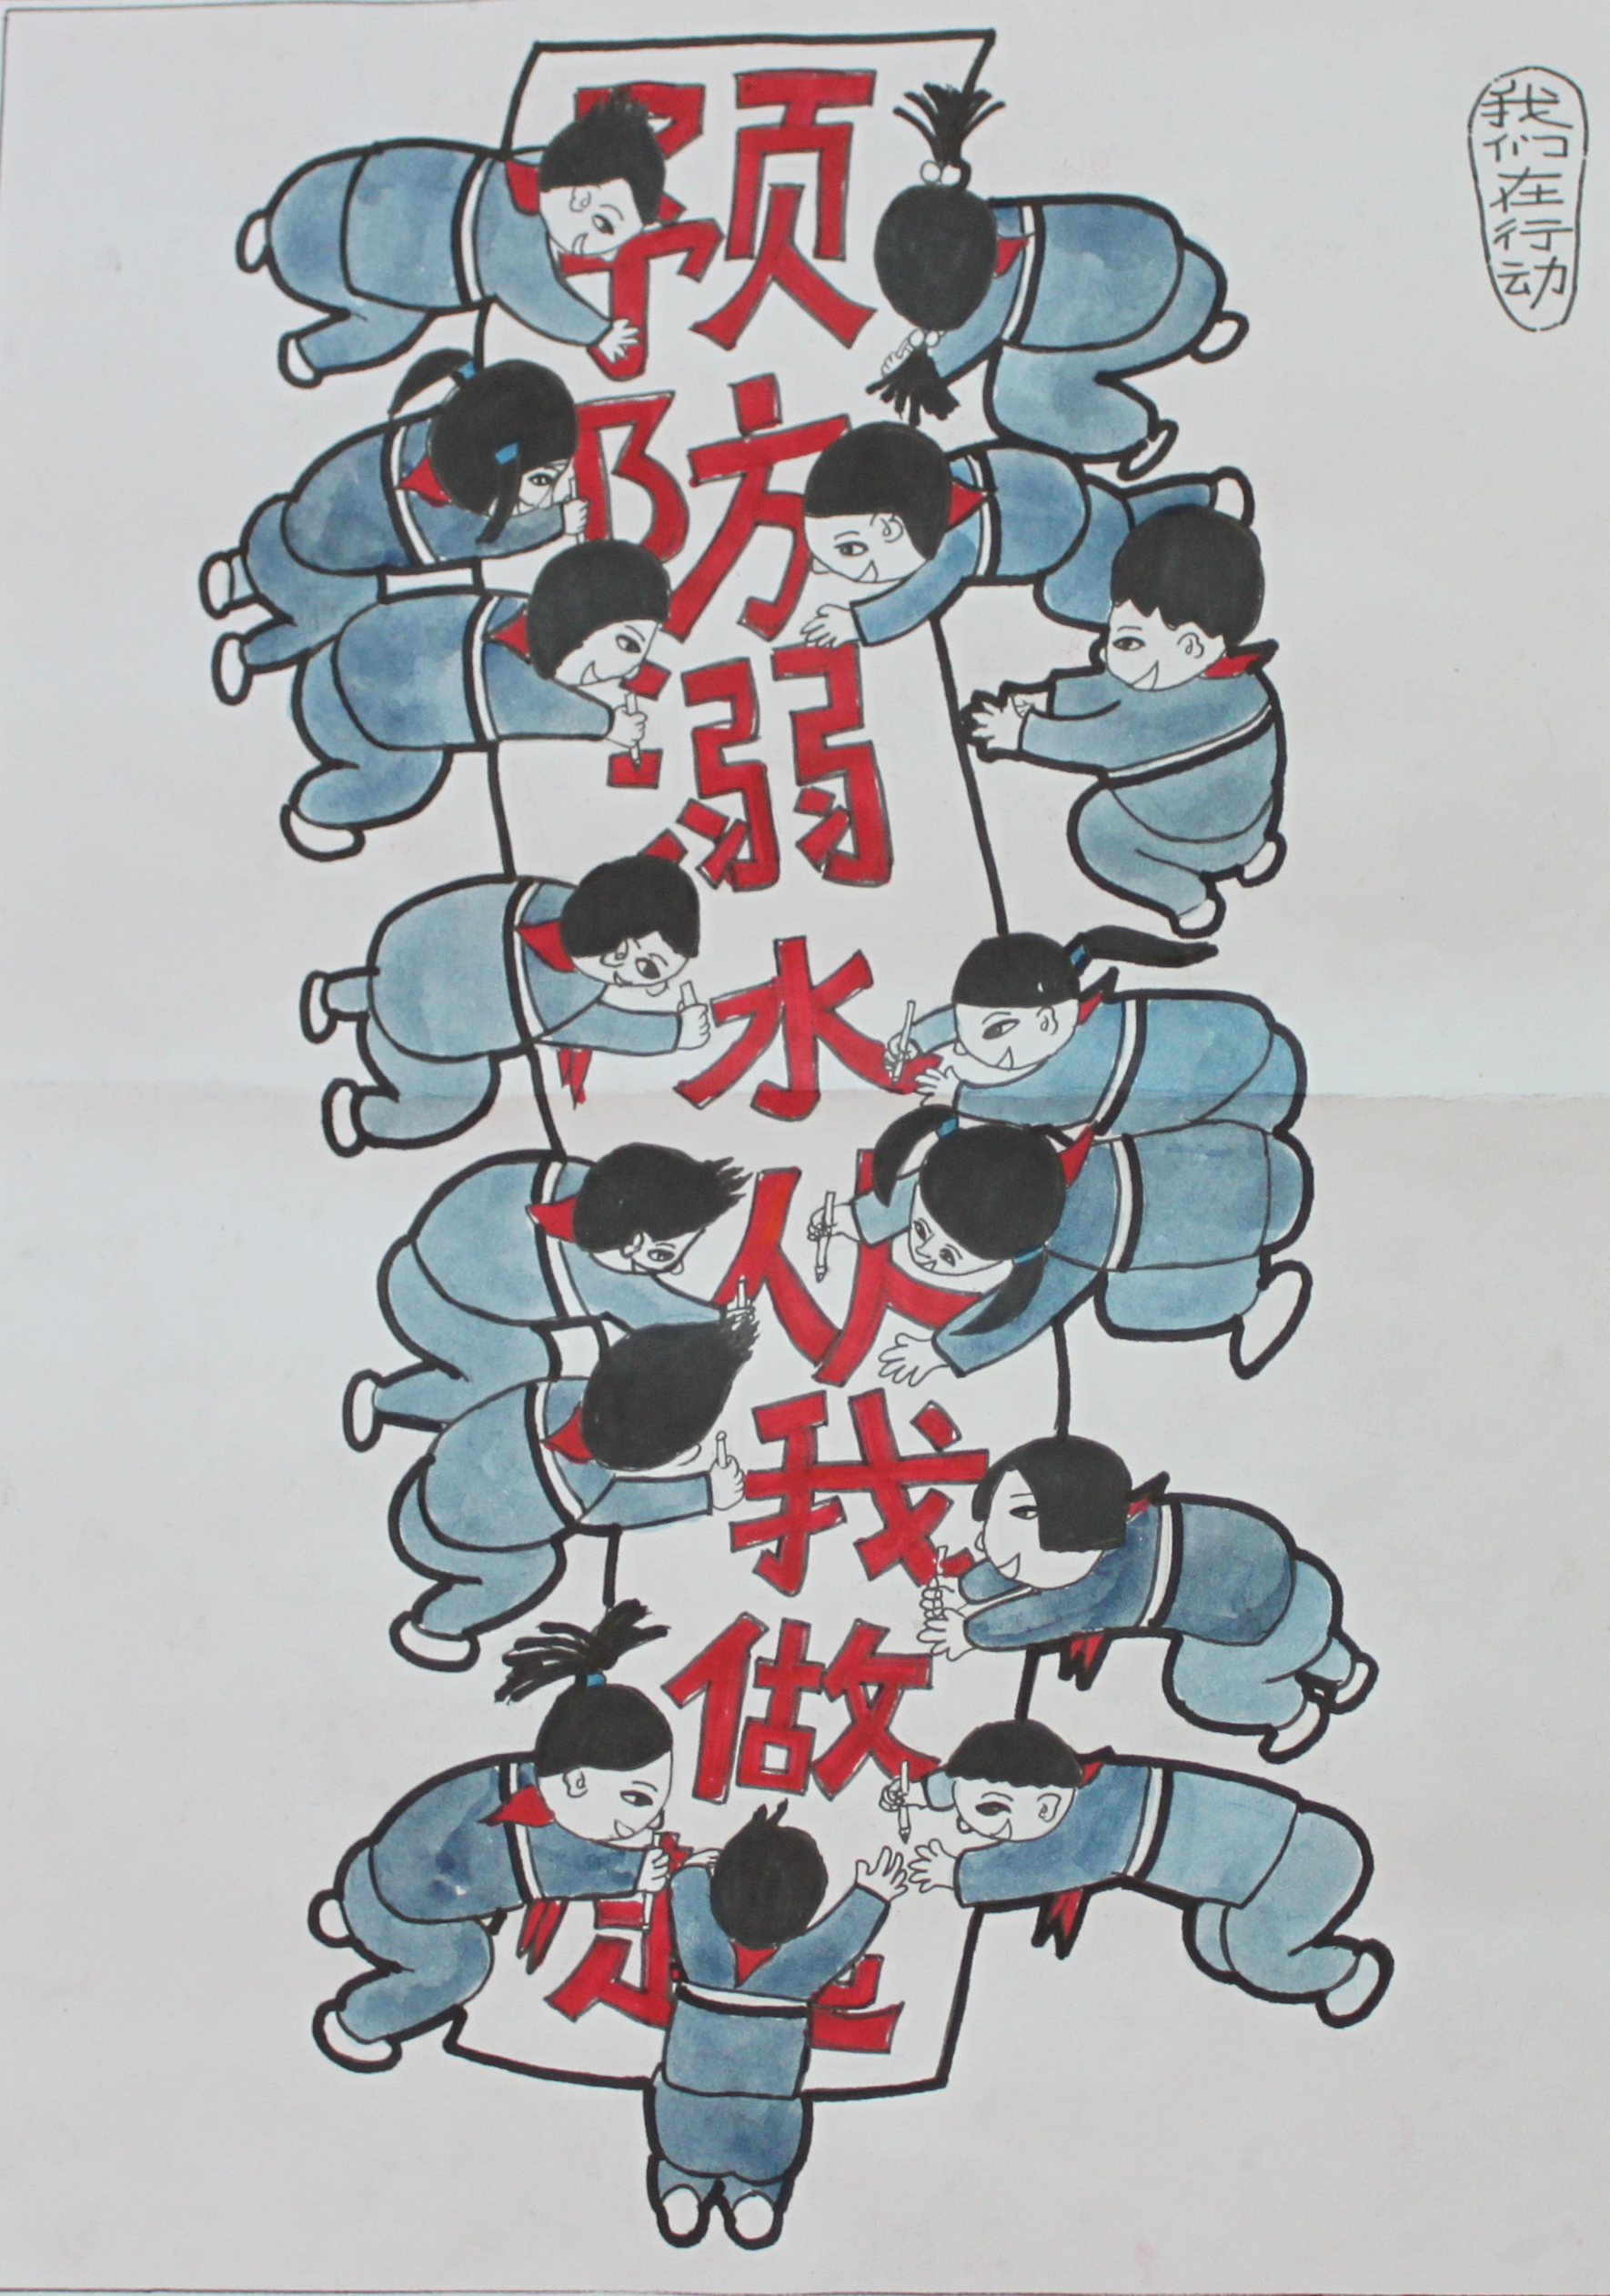 预防溺水从我做起
我们在行动